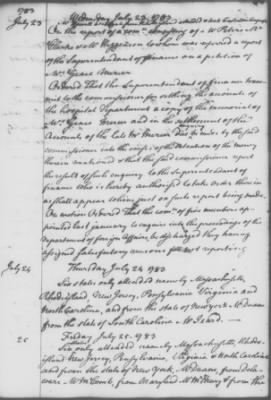 1783
July 23
Wednesday July 23. 1783
On the report of a comee consisting of Mr Peters Mr
Clarke & Mr Higginson to whom was referred a report
of the Superintendant of finance on a petition of
Mrs Grace Mercer
Ordered That the Superintendant of finance trans
mit to the commissioner for settling the accounts of
the hospital Department a copy of the memorial of
Mrs Grace Mercer and in the settlement of the
Accounts of the late Mr Mercer by the said
commissioner into the of the detention of the money
therein mentioned & that the said commissioner report
the result of such enquiry to the Superintendant of
finance who is hereby authorised to take order therein
as shall appear to him just on such report being made.
On motion Ordered That the comee of five members ap-
pointed last January to inquire into the proceedings of the
Department of foreign Affairs be discharged they having
assigned satisfactory reasons for not reporting
July 24
Thursday July 24 1783
Six states only attended namely Massachusetts,
Rhode island, New Jersey, Pensylvania Virginia and
North Carolina, and from the state of New york Mr Duane
from the state of South Carolina Mr Izard.
25
Friday July 25. 1783
Six only attended namely Massachusetts, Rhode
island New Jersey, Pensylvania, Virginia & North Carolina
and from the state of New york, Mr Duane, from Dela-
ware Mr McComb, from Maryland Mr McHenry & from the